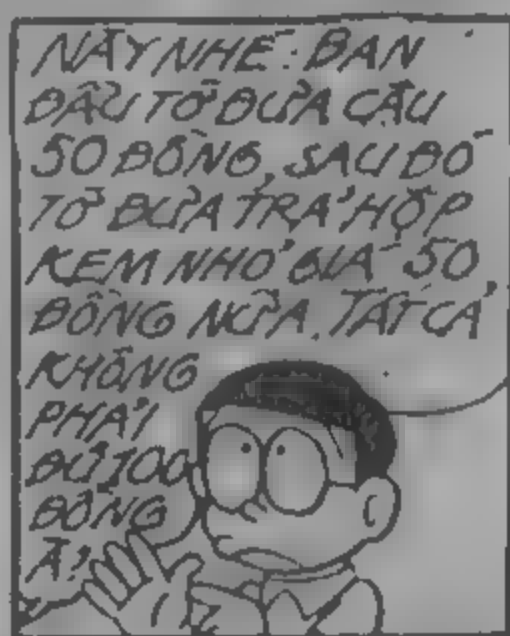 NÀY NHÉ: BAN
ĐẦU TỚ ĐƯA CẬU
50 ĐỒNG, SAU ĐÓ
TỚ ĐƯA TRẢ HỘP
KEM NHỎ GIÁ 50
ĐỒNG NỮA. TẤT CẢ
KHÔNG
PHẢI
ĐỦ 100
ĐỒNG
À?